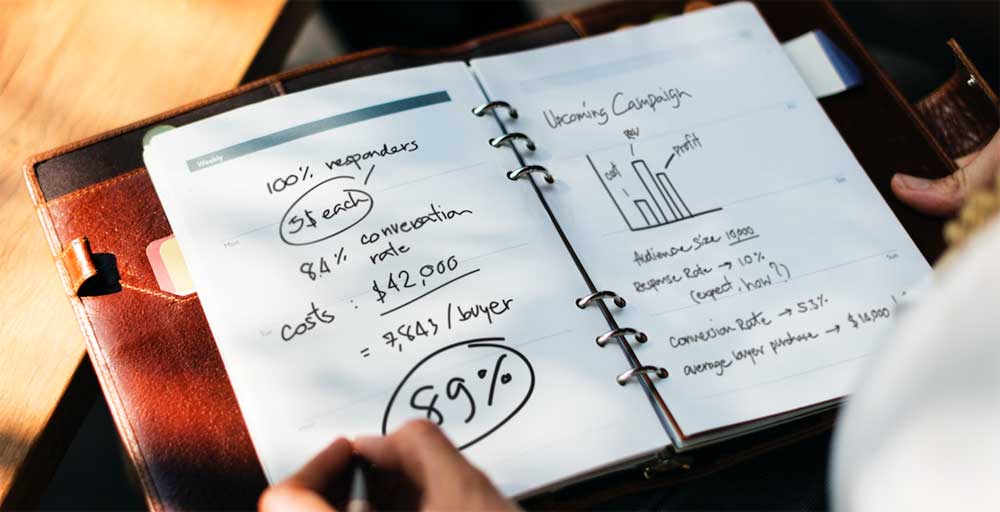 Weekly
100% responders
5$ each
84% conversation
rate
costs : $42,000
= 7,843 / buyer
89%
Mon
Upcoming Campaign
cost
rev
profit
Audience size 10,000
Response Rate → 10%
(expect, how?)
Conversion Rate → 5.3%
average buyer purchase → $14,000
Sun